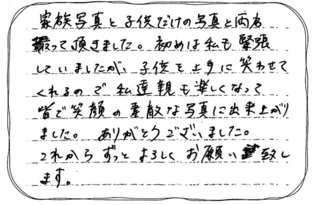 家族写真と子供だけの写真と両方
撮って頂きました。初めは私も緊張
していましたが、子供を上手に笑わせて
くれるので私達親も楽しくなって
皆で笑顔の素敵な写真に出来上がり
ました。ありがとうございました。
これからずっとよろしくお願い致し
ます。